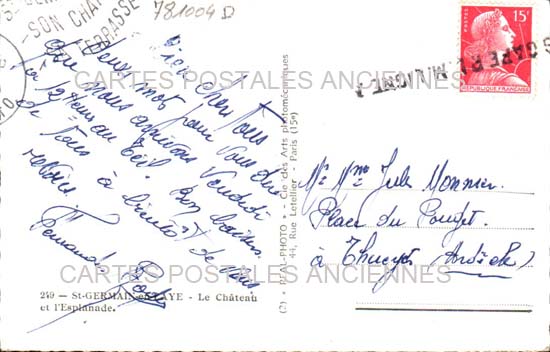 781004 D
ST GERM
SON CHAT
TERRASSE
GARE P.L.M. LIGNE A
15F
REPUBLIQUE FRANÇAISE
CARTES POSTALES ANCIENNES
Bien chers tous
Deux mots pour vous dire
que nous arrivons Vendredi
à 12 heures au Teil. Bon baisers
de tous à bientôt de vous
revoir
Fernande
249 — St-GERMAIN-en-LAYE - Le Château
et l'Esplanade.
(2) REAL-PHOTO - Cie des Arts photomécaniques
44, Rue Letellier - Paris (15e)
Mr Mme Jules Monnier
Place du
à Thueyts Ardèche
CARTES POSTALES ANCIENNES